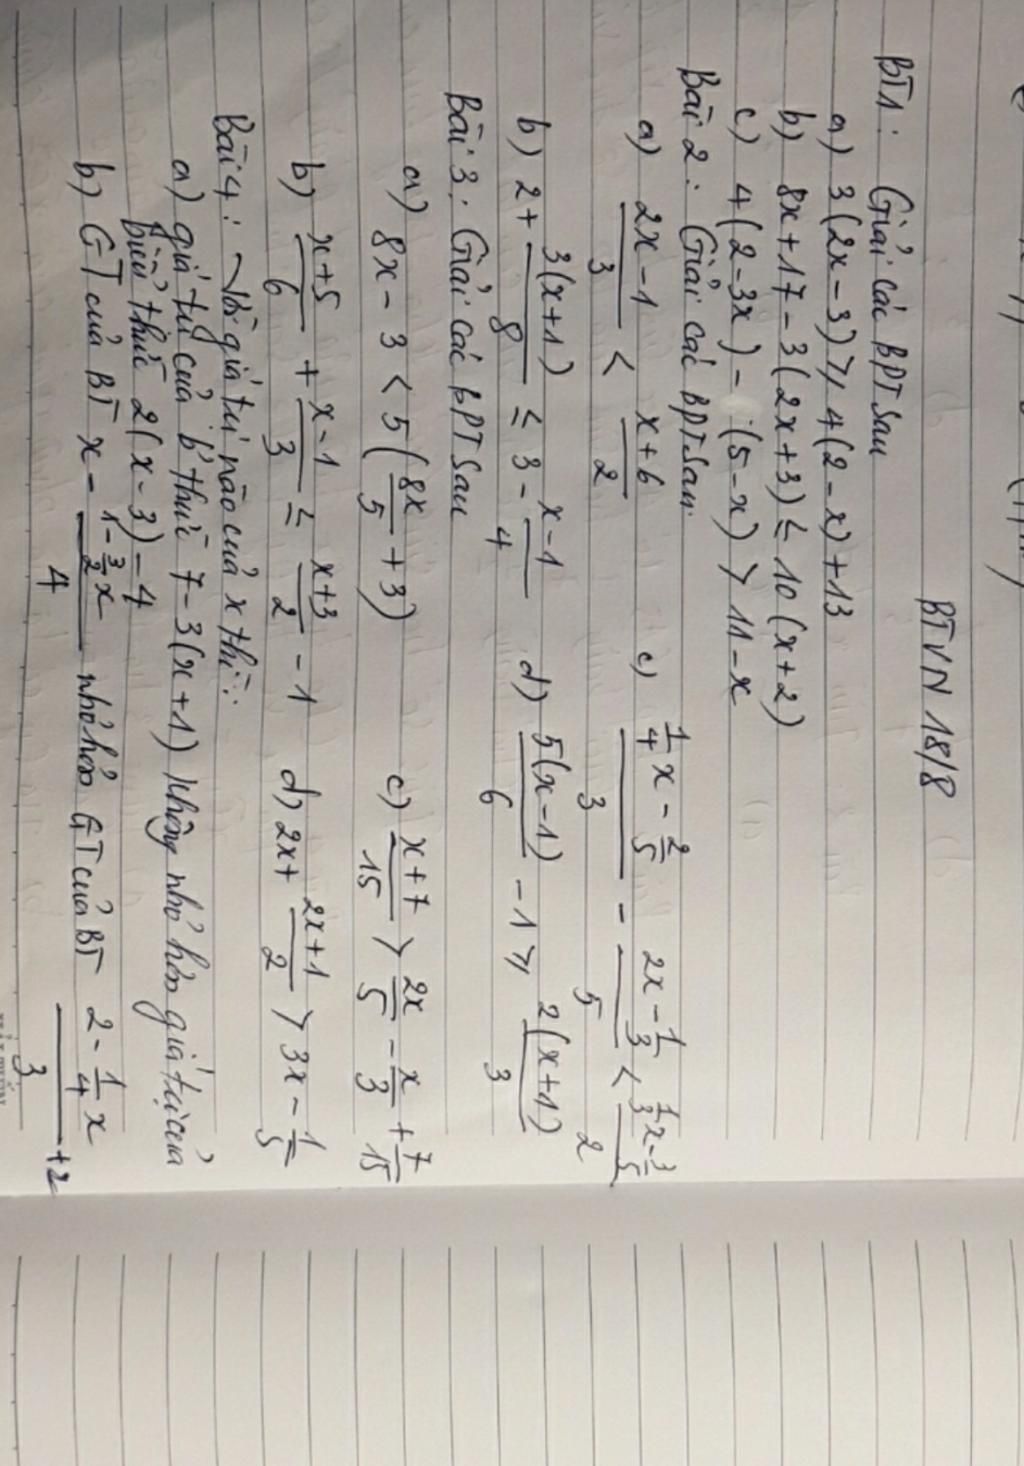 BTVN 18/8
BT1: Giải các BPT sau
a) 3(2x-3) ≥ 4(2-x)+13
b) 8x+17-3(2x+3) ≤ 10(x+2)
c) 4(2-3x) - (5-x) > 11-x
Bài 2: Giải các BPT sau
a) (2x-1)/3 < (x+6)/2 c) (1/4x - 2/5)/3 - (2x - 1/3)/5 < (1/3x - 3/5)/2
b) 2 + 3(x+1)/8 ≤ 3 - (x-1)/4 d) 5(x-1)/6 - 1 ≥ 2(x+1)/3
Bài 3: Giải các bPT sau
a) 8x - 3 < 5(8x/5 + 3) c) (x+7)/15 > 2x/5 - x/3 + 7/15
b) (x+5)/6 + (x-1)/3 ≤ (x+3)/2 - 1 d) 2x + (2x+1)/2 > 3x - 1/5
Bài 4: Với giá trị nào của x thì:
a) giá trị của b' thức 7-3(x+1) không nhỏ hơn giá trị của
biểu thức 2(x-3)-4
b) GT của BT x - (1 - 3/2 x)/4 nhỏ hơn GT của BT (2 - 1/4 x)/3 + 2